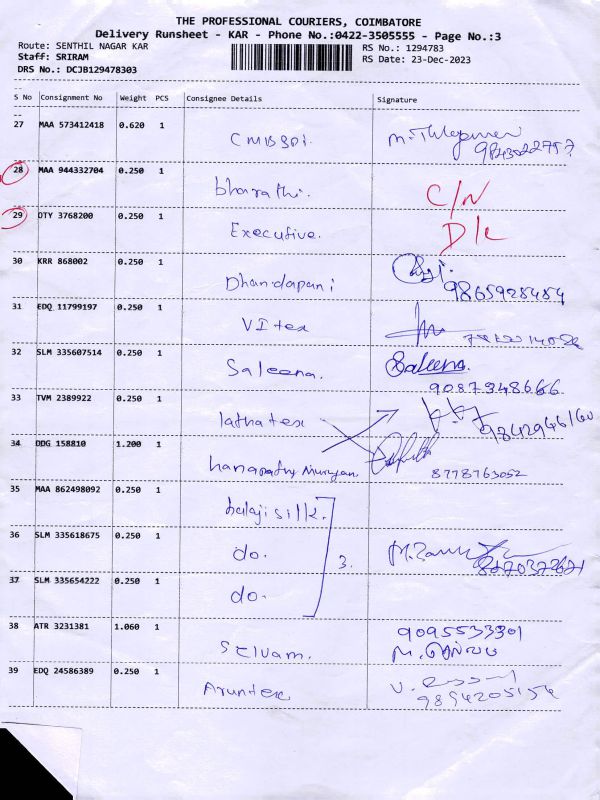 THE PROFESSIONAL COURIERS, COIMBATORE
Delivery Runsheet - KAR - Phone No.:0422-3505555 - Page No.:3
Route: SENTHIL NAGAR KAR RS No.: 1294783
Staff: SRIRAM RS Date: 23-Dec-2023
DRS No.: DCJB129478303
S No Consignment No Weight PCS Consignee Details Signature
27 MAA 573412418 0.620 1
28 MAA 944332704 0.250 1 bharathi. C/N
29 OTY 3768200 0.250 1 Executive. D/L
30 KRR 868002 0.250 1 Dhandapani 9865928484
31 EDQ 11799197 0.250 1 VItex
32 SLM 335607514 0.250 1 Saleena. Saleena
9087348666
33 TVM 2389922 0.250 1 lathatex
34 DDG 158810 1.200 1 8778763052
35 MAA 862498092 0.250 1 balaji silk.
36 SLM 335618675 0.250 1 do. 3.
37 SLM 335654222 0.250 1 do.
38 ATR 3231381 1.060 1 Selvam. 9095533301
39 EDQ 24586389 0.250 1 Aruntex 9894205154